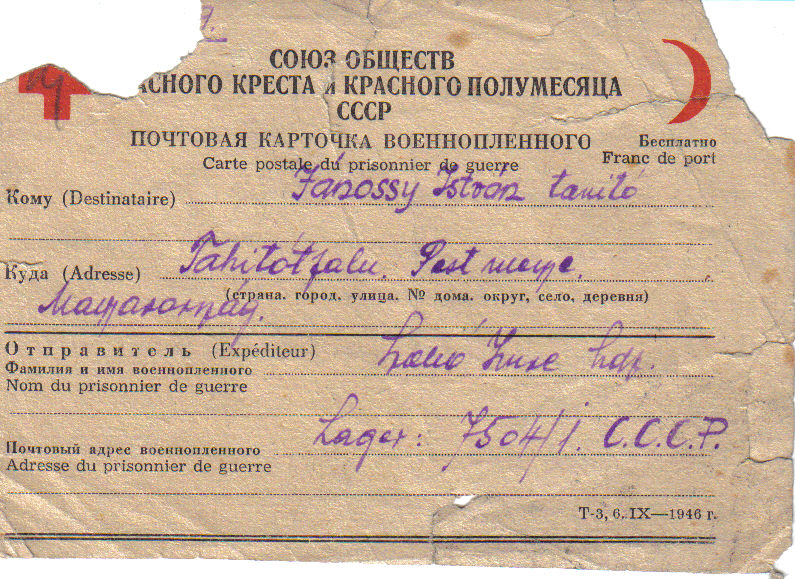 СОЮЗ ОБЩЕСТВ
АСНОГО КРЕСТА И КРАСНОГО ПОЛУМЕСЯЦА
СССР
ПОЧТОВАЯ КАРТОЧКА ВОЕННОПЛЕННОГО
Бесплатно
Carte postale du prisonnier de guerre
Franc de port
Кому (Destinataire) Jánossy István tanító
Куда (Adresse) Tahitótfalu. Pest megye.
(страна, город, улица, № дома, округ, село, деревня)
Отправитель (Expéditeur)
Фамилия и имя военнопленного
Nom du prisonnier de guerre
Lager: 7504/1. C.C.C.P.
Почтовый адрес военнопленного
Adresse du prisonnier de guerre
Т-3, 6. IX—1946 г.